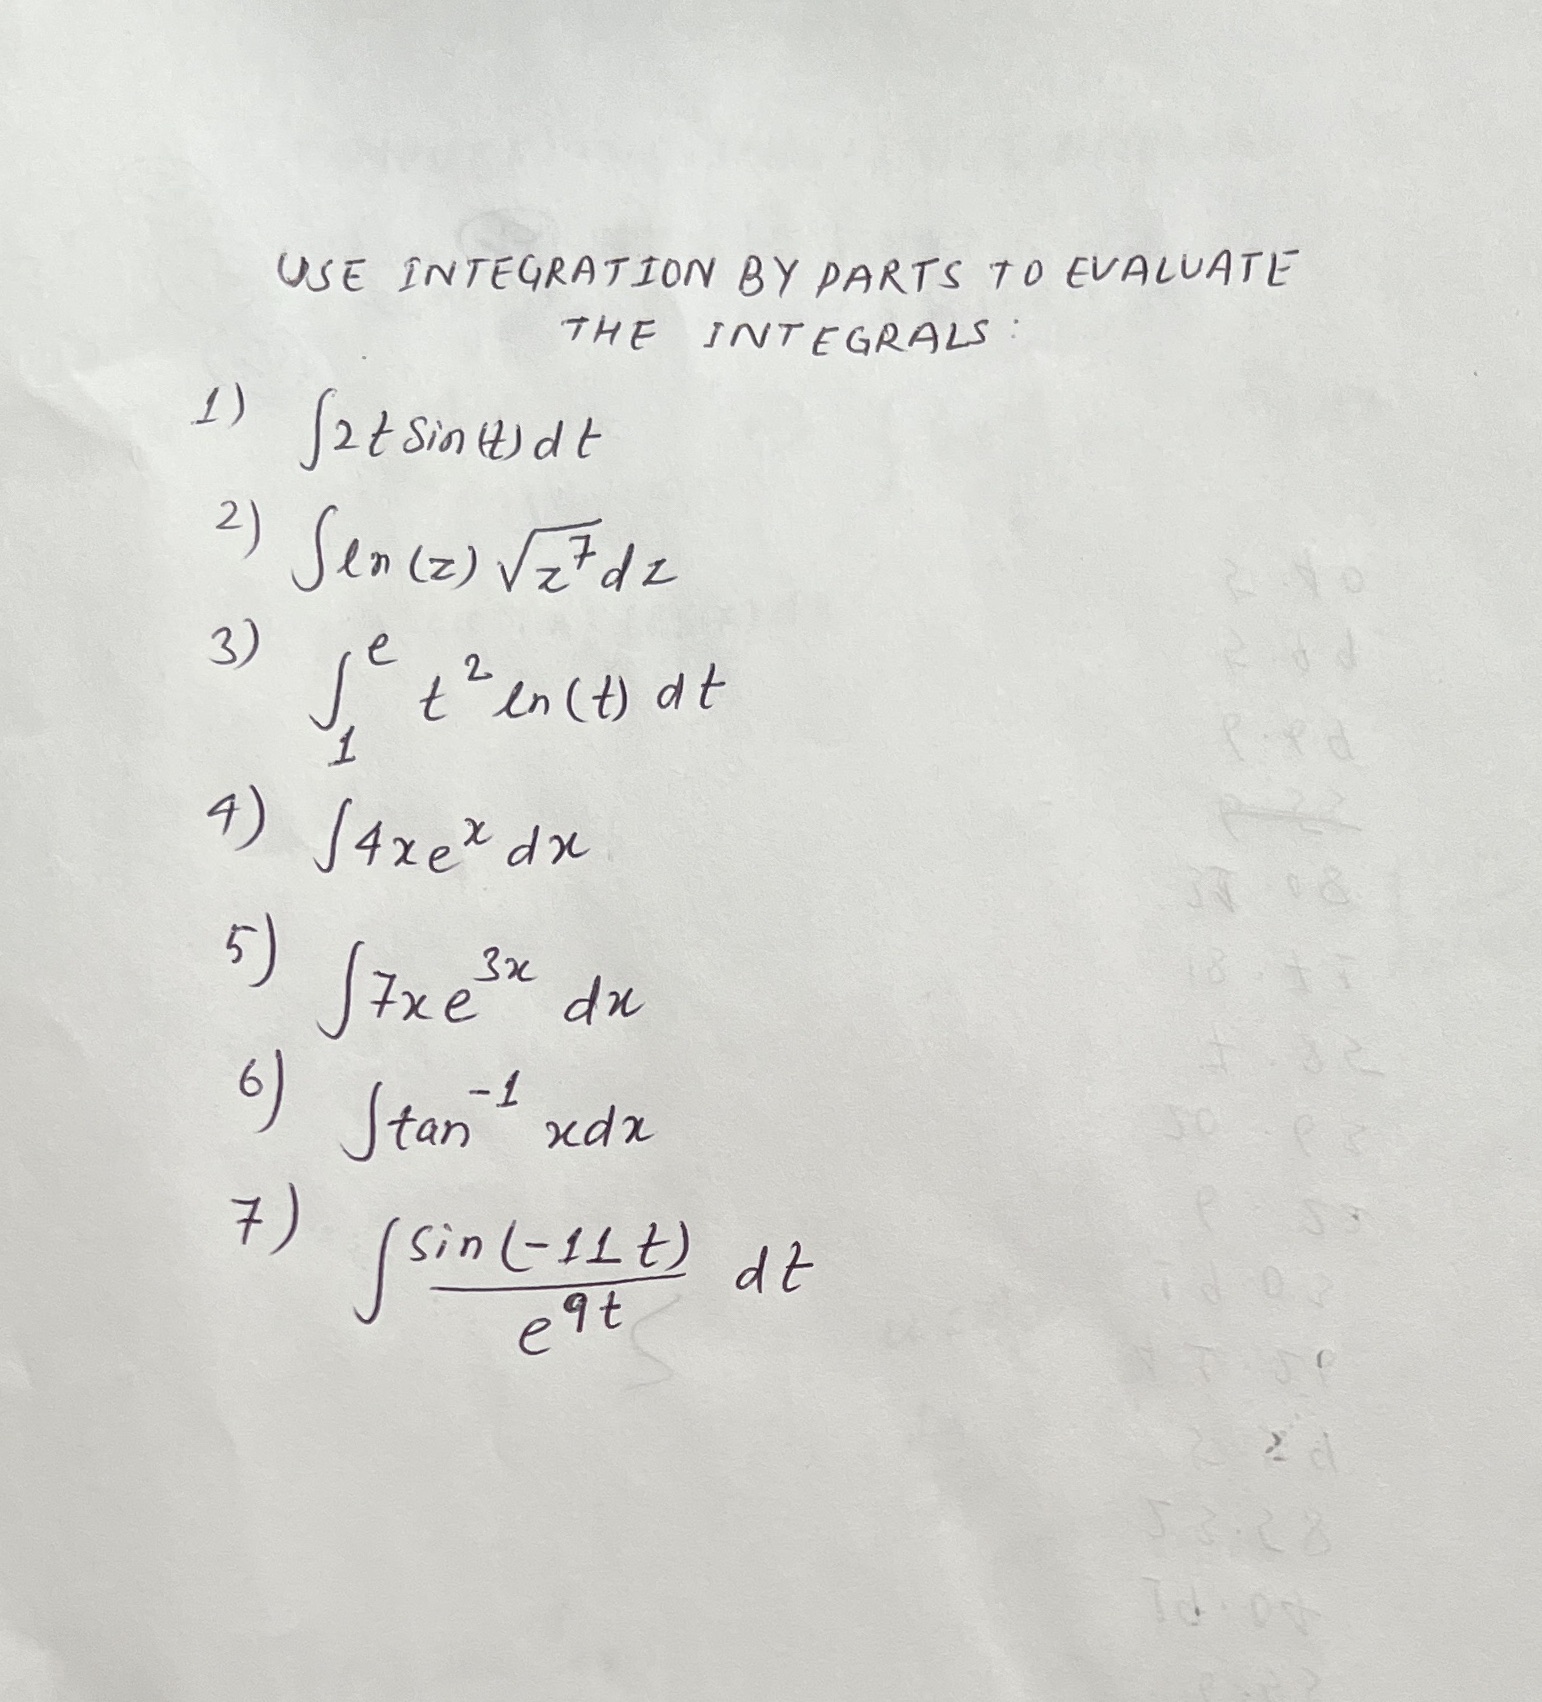 USE INTEGRATION BY PARTS TO EVALUATE
THE INTEGRALS:
1) ∫2t Sin(t) dt
2) ∫ln(z) √z⁷ dz
3) ∫₁ᵉ t² ln(t) dt
4) ∫4xeˣ dx
5) ∫7xe³ˣ dx
6) ∫tan⁻¹ xdx
7) ∫ sin(-11t)/e⁹ᵗ dt